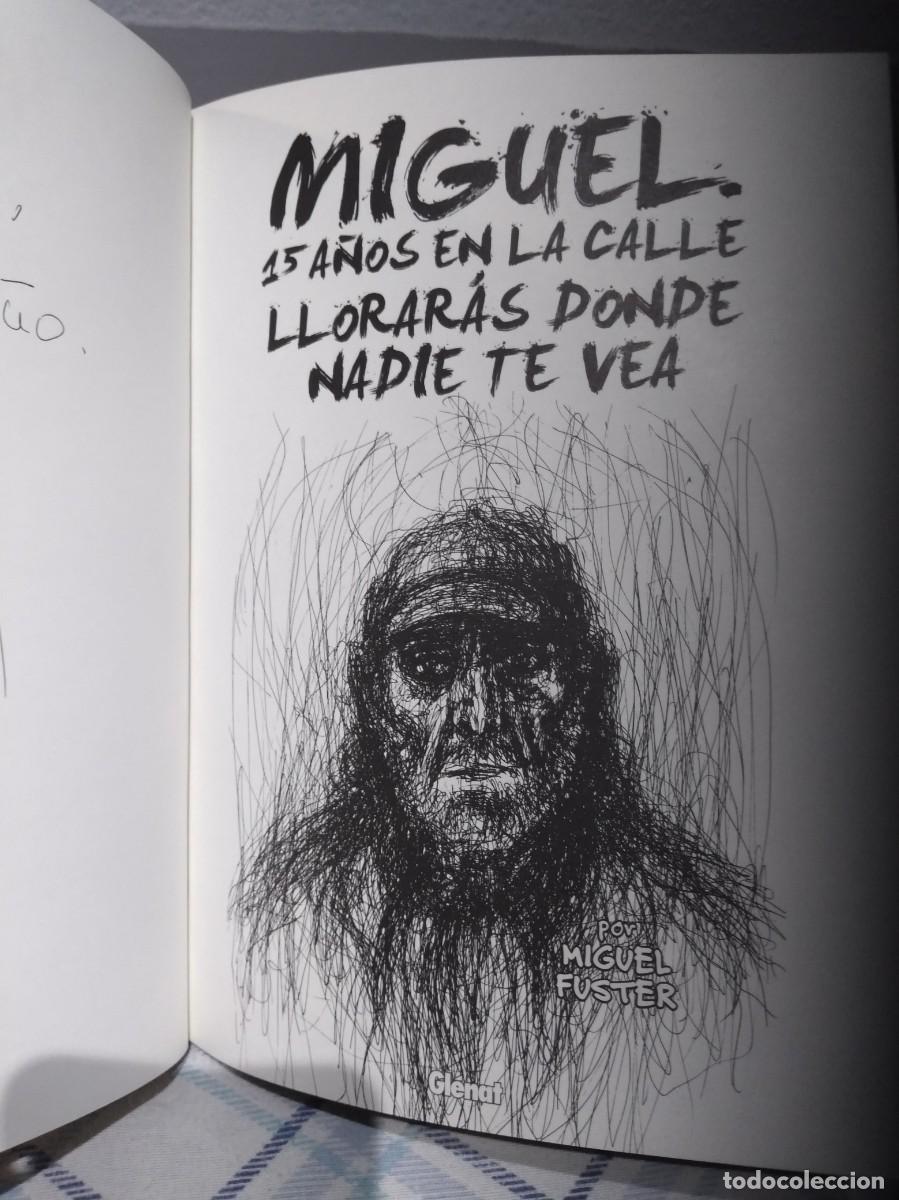 MIGUEL.
15 AÑOS EN LA CALLE
LLORARÁS DONDE
NADIE TE VEA
POR
MIGUEL
FUSTER
Glénat
todocoleccion